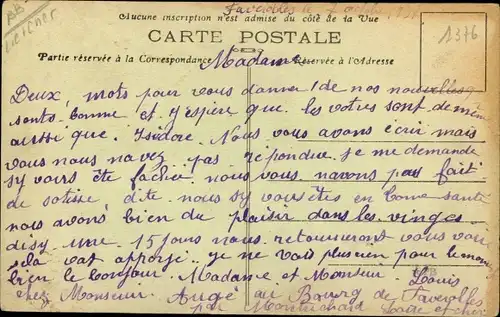 Faverolles le 7 octobre
Aucune inscription n'est admise du côté de la Vue
CARTE POSTALE
1376
Partie réservée à la Correspondance
Réservée à l'Adresse
Madame
Deux, mots pour vous donner de nos nouvelles
sont bonne et j'espère que les votres sont de même
aussi que. Isidore. Nous vous avons écrit mais
vous nous navez pas répondue. je me demande
sy vous ête fachée nous vous navons pas fait
de sotise, dite nous sy vous êtes en bonne santé
nous avons bien du plaisir dans les vinges
disy une 15 jours nous retourneront vous voir
sela vat approşé. je ne vais plus rien pour le moment
bien le bonjour. Madame et Monsieur. Louis
chez Monsieur Augé au Bourg de Faverolles
par Montrichard Loire et cher